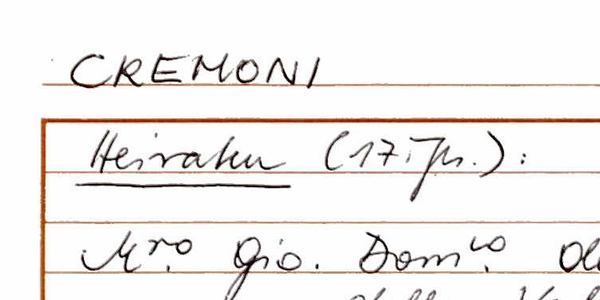 CREMONI
Heiraten (17. Jh.):
Mro. Gio. Domco.